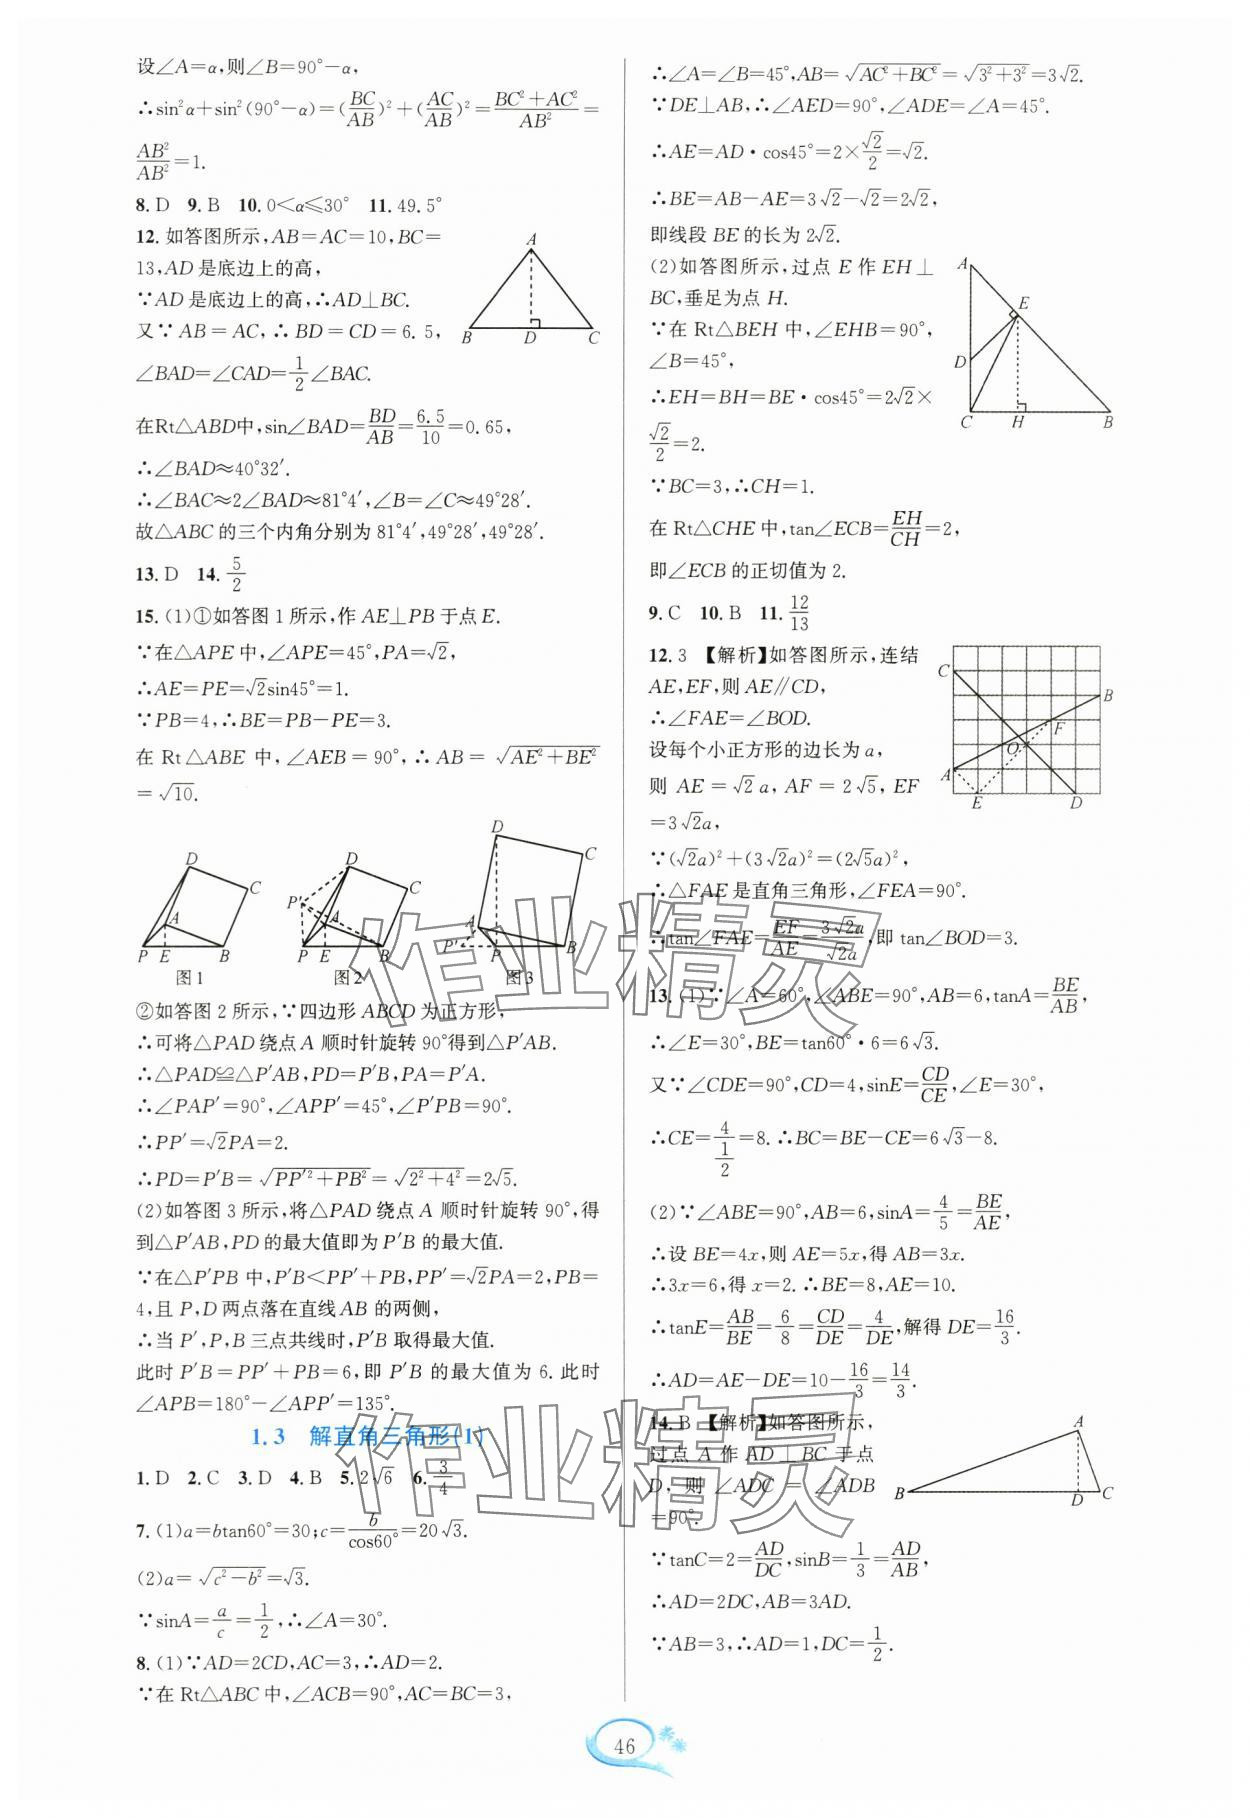 设∠A=α,则∠B=90°-α,
∴sin²α+sin²(90°-α)=(BC/AB)²+(AC/AB)²=(BC²+AC²)/AB²=
AB²/AB²=1.
8. D 9. B 10. 0<α≤30° 11. 49.5°
12. 如答图所示,AB=AC=10,BC=
13,AD是底边上的高,
∵AD是底边上的高,∴AD⊥BC.
又∵AB=AC,∴BD=CD=6.5,
∠BAD=∠CAD=1/2∠BAC.
在Rt△ABD中,sin∠BAD=BD/AB=6.5/10=0.65,
∴∠BAD≈40°32′.
∴∠BAC≈2∠BAD≈81°4′,∠B=∠C≈49°28′.
故△ABC的三个内角分别为81°4′,49°28′,49°28′.
A
B D C
13. D 14. 5/2
15. (1)①如答图1所示,作AE⊥PB于点E.
∵在△APE中,∠APE=45°,PA=√2,
∴AE=PE=√2sin45°=1.
∵PB=4,∴BE=PB-PE=3.
在Rt△ABE中,∠AEB=90°,∴AB=√(AE²+BE²)
=√10.
D C A P E B
图1
D C P′ A P E B
图2
D C A P′ P B
图3
②如答图2所示,∵四边形ABCD为正方形,
∴可将△PAD绕点A顺时针旋转90°得到△P′AB.
∴△PAD≌△P′AB,PD=P′B,PA=P′A.
∴∠PAP′=90°,∠APP′=45°,∠P′PB=90°.
∴PP′=√2PA=2.
∴PD=P′B=√(PP′²+PB²)=√(2²+4²)=2√5.
(2)如答图3所示,将△PAD绕点A顺时针旋转90°,得
到△P′AB,PD的最大值即为P′B的最大值.
∵在△P′PB中,P′B<PP′+PB,PP′=√2PA=2,PB=
4,且P,D两点落在直线AB的两侧,
∴当P′,P,B三点共线时,P′B取得最大值.
此时P′B=PP′+PB=6,即P′B的最大值为6.此时
∠APB=180°-∠APP′=135°.
1.3 解直角三角形(1)
1. D 2. C 3. D 4. B 5. 2√6 6. 3/4
7. (1)a=btan60°=30;c=b/cos60°=20√3.
(2)a=√(c²-b²)=√3.
∵sinA=a/c=1/2,∴∠A=30°.
8. (1)∵AD=2CD,AC=3,∴AD=2.
∵在Rt△ABC中,∠ACB=90°,AC=BC=3,
∴∠A=∠B=45°,AB=√(AC²+BC²)=√(3²+3²)=3√2.
∵DE⊥AB,∴∠AED=90°,∠ADE=∠A=45°.
∴AE=AD·cos45°=2×√2/2=√2.
∴BE=AB-AE=3√2-√2=2√2,
即线段BE的长为2√2.
(2)如答图所示,过点E作EH⊥
BC,垂足为点H.
∵在Rt△BEH中,∠EHB=90°,
∠B=45°,
∴EH=BH=BE·cos45°=2√2×
√2/2=2.
∵BC=3,∴CH=1.
在Rt△CHE中,tan∠ECB=EH/CH=2,
即∠ECB的正切值为2.
A
E
D
C H B
9. C 10. B 11. 12/13
12. 3 【解析】如答图所示,连结
AE,EF,则AE∥CD,
∴∠FAE=∠BOD.
设每个小正方形的边长为a,
则AE=√2a,AF=2√5,EF
=3√2a,
∵(√2a)²+(3√2a)²=(2√5a)²,
∴△FAE是直角三角形,∠FEA=90°.
∴tan∠FAE=EF/AE=3√2a/√2a,即tan∠BOD=3.
C
B
F
O
A
E D
13. (1)∵∠A=60°,∠ABE=90°,AB=6,tanA=BE/AB,
∴∠E=30°,BE=tan60°·6=6√3.
又∵∠CDE=90°,CD=4,sinE=CD/CE,∠E=30°,
∴CE=4/(1/2)=8.∴BC=BE-CE=6√3-8.
(2)∵∠ABE=90°,AB=6,sinA=4/5=BE/AE,
∴设BE=4x,则AE=5x,得AB=3x.
∴3x=6,得x=2.∴BE=8,AE=10.
∴tanE=AB/BE=6/8=CD/DE=4/DE,解得DE=16/3.
∴AD=AE-DE=10-16/3=14/3.
14. B 【解析】如答图所示,
过点A作AD⊥BC于点
D,则∠ADC=∠ADB
=90°.
∵tanC=2=AD/DC,sinB=1/3=AD/AB,
∴AD=2DC,AB=3AD.
∵AB=3,∴AD=1,DC=1/2.
A
B D C
作业精灵
作业精灵
46